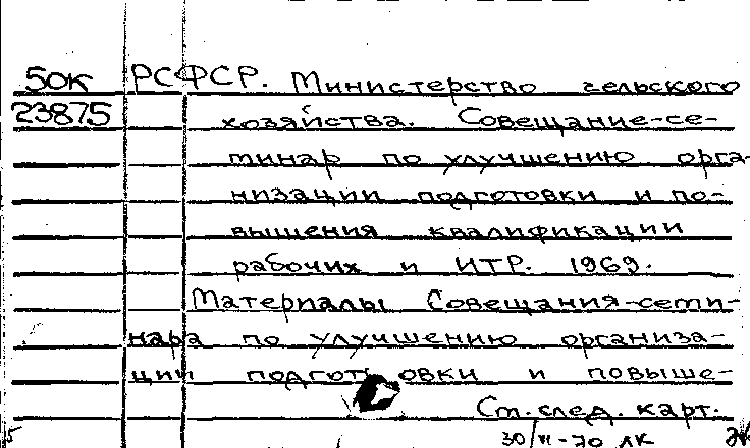 50К РСФСР. Министерство сельского
23875 хозяйства. Совещание-се-
минар по улучшению орга-
низации подготовки и по-
вышения квалификации
рабочих и ИТР. 1969.
Материалы Совещания-семи-
нара по улучшению организа-
ции подготовки и повыше-
См. след. карт.
30/VI-70 ЛК